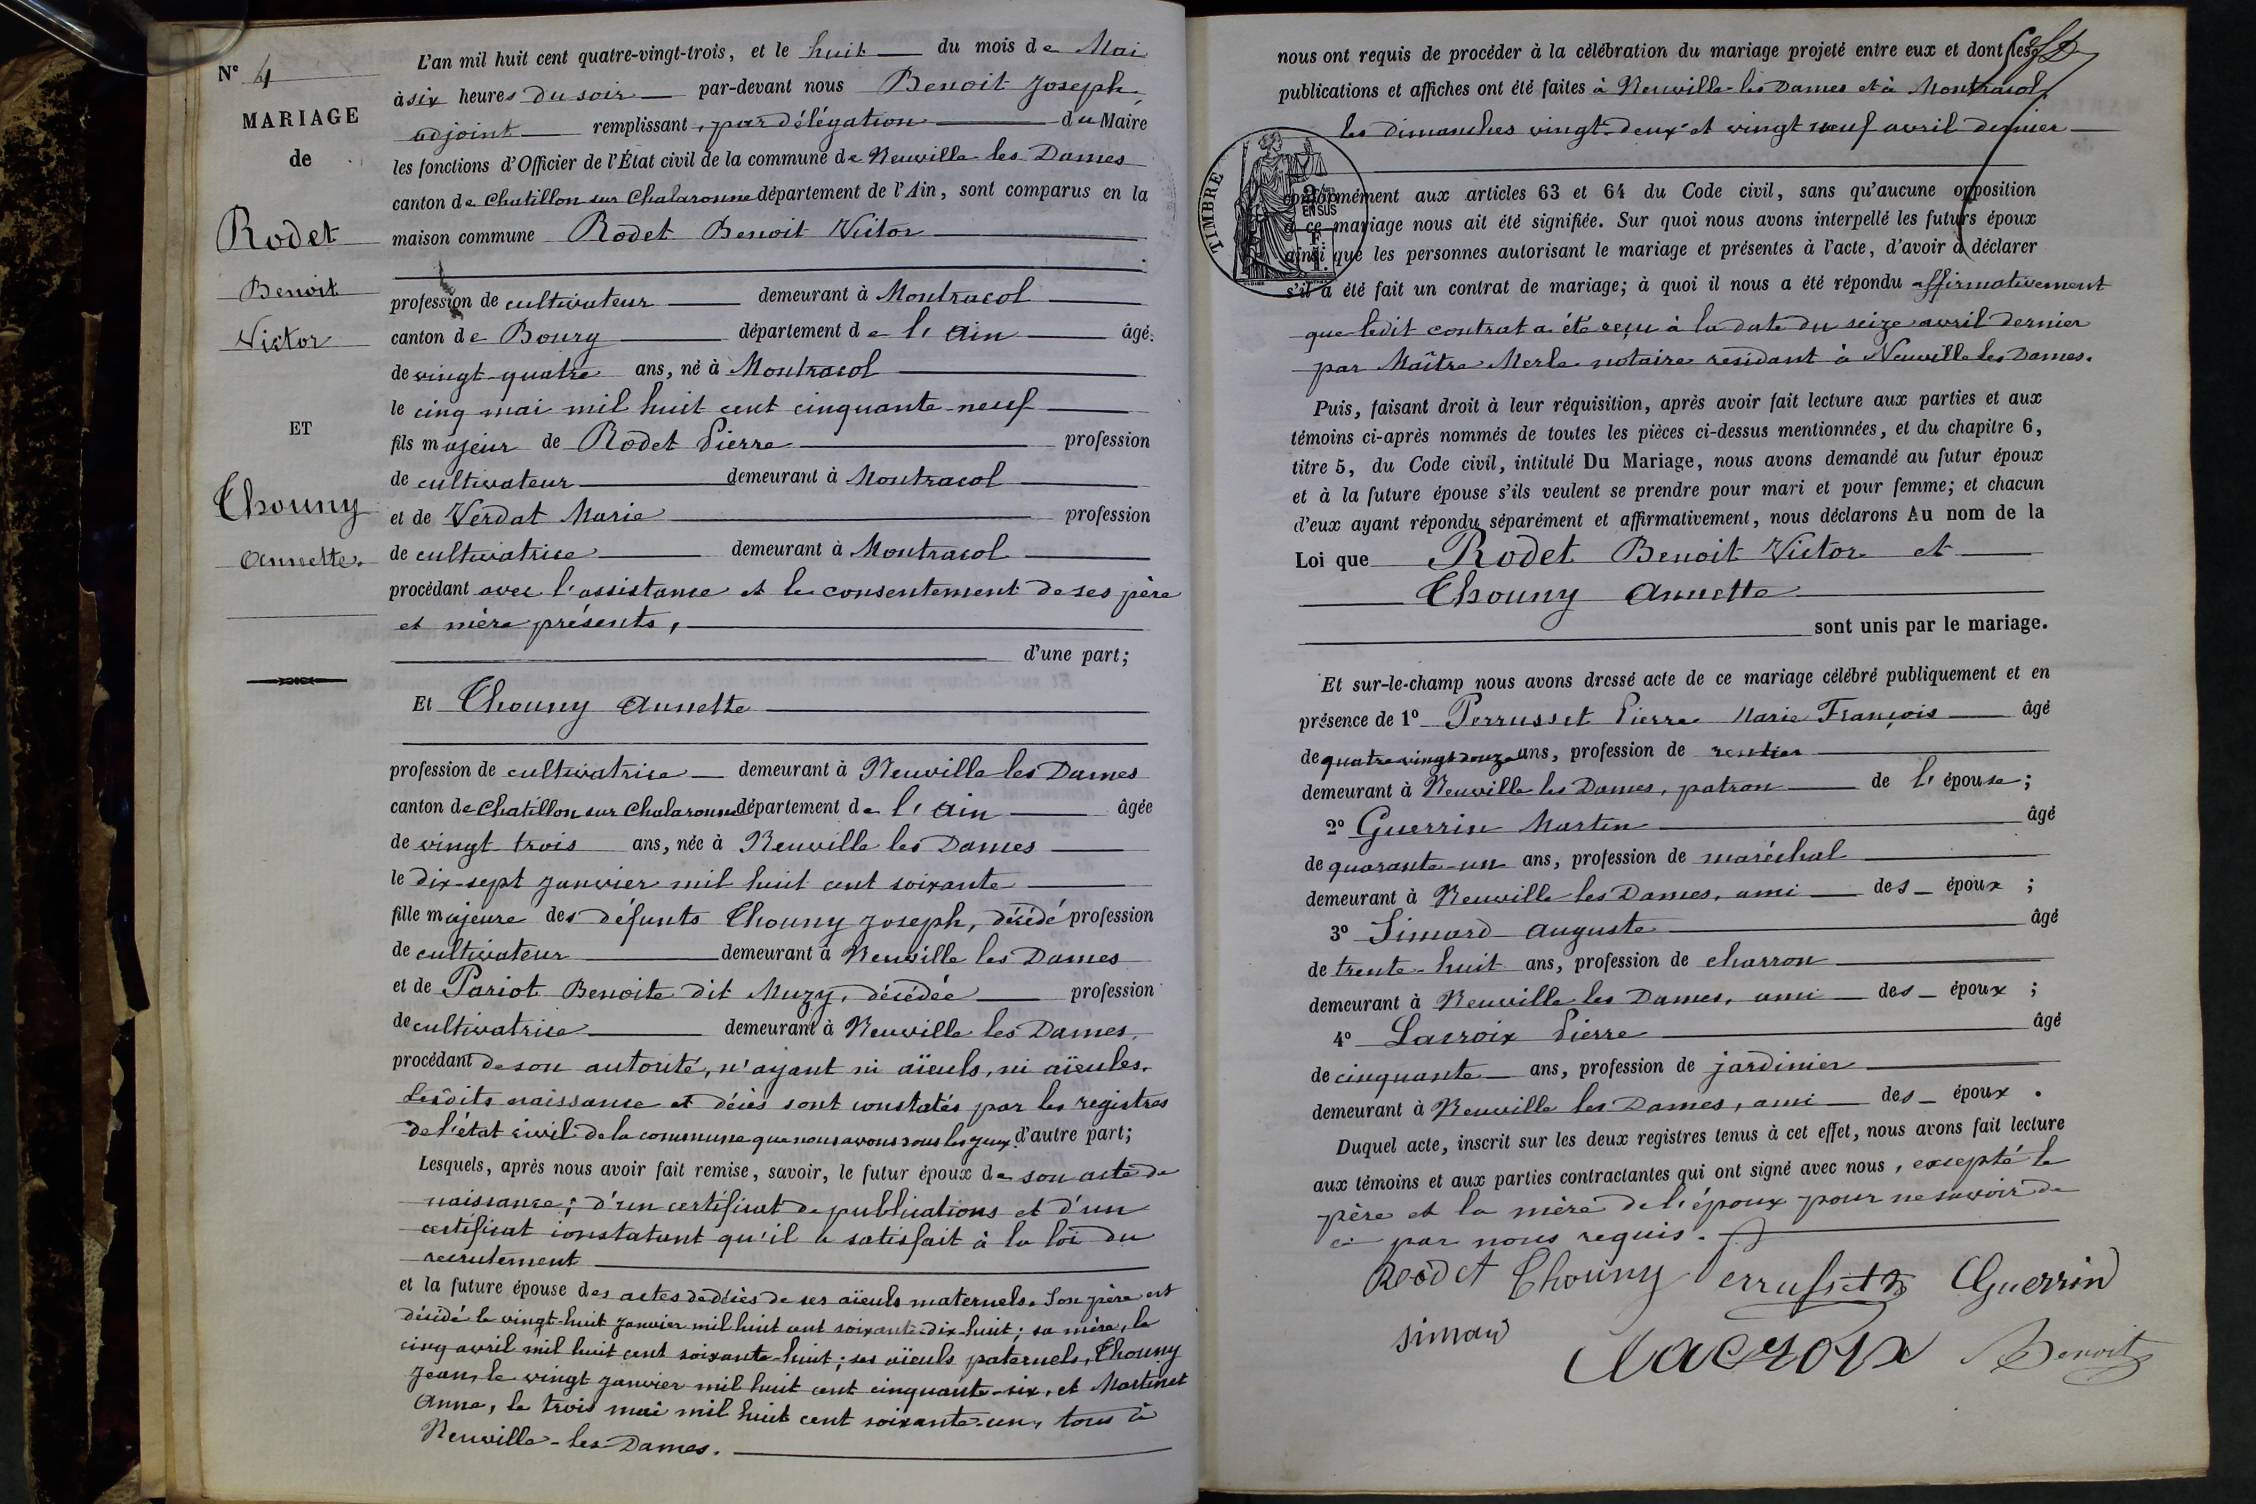 N° 4
MARIAGE
de
Rodet
Benoit
Victor
ET
Thouny
Annette.
L'an mil huit cent quatre-vingt-trois, et le huit du mois de Mai
à six heures du soir par-devant nous Benoit Joseph,
adjoint remplissant, par délégation du Maire
les fonctions d'Officier de l'État civil de la commune de Neuville les Dames
canton de Chatillon sur Chalaronne département de l'Ain, sont comparus en la
maison commune Rodet Benoit Victor
profession de cultivateur demeurant à Montracol
canton de Bourg département de l'Ain âgé
de vingt-quatre ans, né à Montracol
le cinq mai mil huit cent cinquante-neuf
fils majeur de Rodet Pierre profession
de cultivateur demeurant à Montracol
et de Verdat Marie profession
de cultivatrice demeurant à Montracol
procédant avec l'assistance et le consentement de ses père
et mère présents,
d'une part;
Et Thouny Annette
profession de cultivatrice demeurant à Neuville les Dames
canton de Chatillon sur Chalaronne département de l'Ain âgée
de vingt trois ans, née à Neuville les Dames
le dix-sept Janvier mil huit cent soixante
fille majeure des défunts Thouny Joseph, décédé profession
de cultivateur demeurant à Neuville les Dames
et de Pariot Benoite dit Muzy, décédée profession
de cultivatrice demeurant à Neuville les Dames,
procédant de son autorité, n'ayant ni aïeuls, ni aïeules.
Lesdits naissance et décès sont constatés par les registres
de l'état civil de la commune que nous avons sous les yeux d'autre part;
Lesquels, après nous avoir fait remise, savoir, le futur époux de son acte de
naissance; d'un certificat de publications et d'un
certificat constatant qu'il a satisfait à la loi du
recrutement
et la future épouse des actes de décès de ses aïeuls maternels. Son père est
décédé le vingt-huit Janvier mil huit cent soixante-dix-huit; sa mère, le
cinq avril mil huit cent soixante-huit; ses aïeuls paternels, Thouny
Jean, le vingt janvier mil huit cent cinquante-six, et Martinet
Anne, le trois mai mil huit cent soixante-un, tous à
Neuville-les-Dames.
nous ont requis de procéder à la célébration du mariage projeté entre eux et dont les
publications et affiches ont été faites à Neuville-les-Dames et à Montracol
les dimanches vingt-deux et vingt neuf avril dernier
TIMBRE
EN SUS
conformément aux articles 63 et 64 du Code civil, sans qu'aucune opposition
à ce mariage nous ait été signifiée. Sur quoi nous avons interpellé les futurs époux
ainsi que les personnes autorisant le mariage et présentes à l'acte, d'avoir à déclarer
s'il a été fait un contrat de mariage; à quoi il nous a été répondu affirmativement
que ledit contrat a été reçu à la date du seize avril dernier
par Maître Merle notaire résidant à Neuville les Dames.
Puis, faisant droit à leur réquisition, après avoir fait lecture aux parties et aux
témoins ci-après nommés de toutes les pièces ci-dessus mentionnées, et du chapitre 6,
titre 5, du Code civil, intitulé Du Mariage, nous avons demandé au futur époux
et à la future épouse s'ils veulent se prendre pour mari et pour femme; et chacun
d'eux ayant répondu séparément et affirmativement, nous déclarons Au nom de la
Loi que Rodet Benoit Victor et
Thouny Annette
sont unis par le mariage.
Et sur-le-champ nous avons dressé acte de ce mariage célébré publiquement et en
présence de 1° Perrusset Pierre Marie François âgé
de quatre vingt douze ans, profession de rentier
demeurant à Neuville les Dames, patron de l'épouse;
2° Guerrin Martin âgé
de quarante-un ans, profession de maréchal
demeurant à Neuville les Dames, ami des époux;
3° Simard Auguste âgé
de trente-huit ans, profession de charron
demeurant à Neuville les Dames, ami des époux;
4° Lacroix Pierre âgé
de cinquante ans, profession de jardinier
demeurant à Neuville les Dames, ami des époux.
Duquel acte, inscrit sur les deux registres tenus à cet effet, nous avons fait lecture
aux témoins et aux parties contractantes qui ont signé avec nous, excepté le
père et la mère de l'époux pour ne savoir de
ce par nous requis.
Rodet Thouny Perrusset Guerrin
Simard Lacroix Benoit